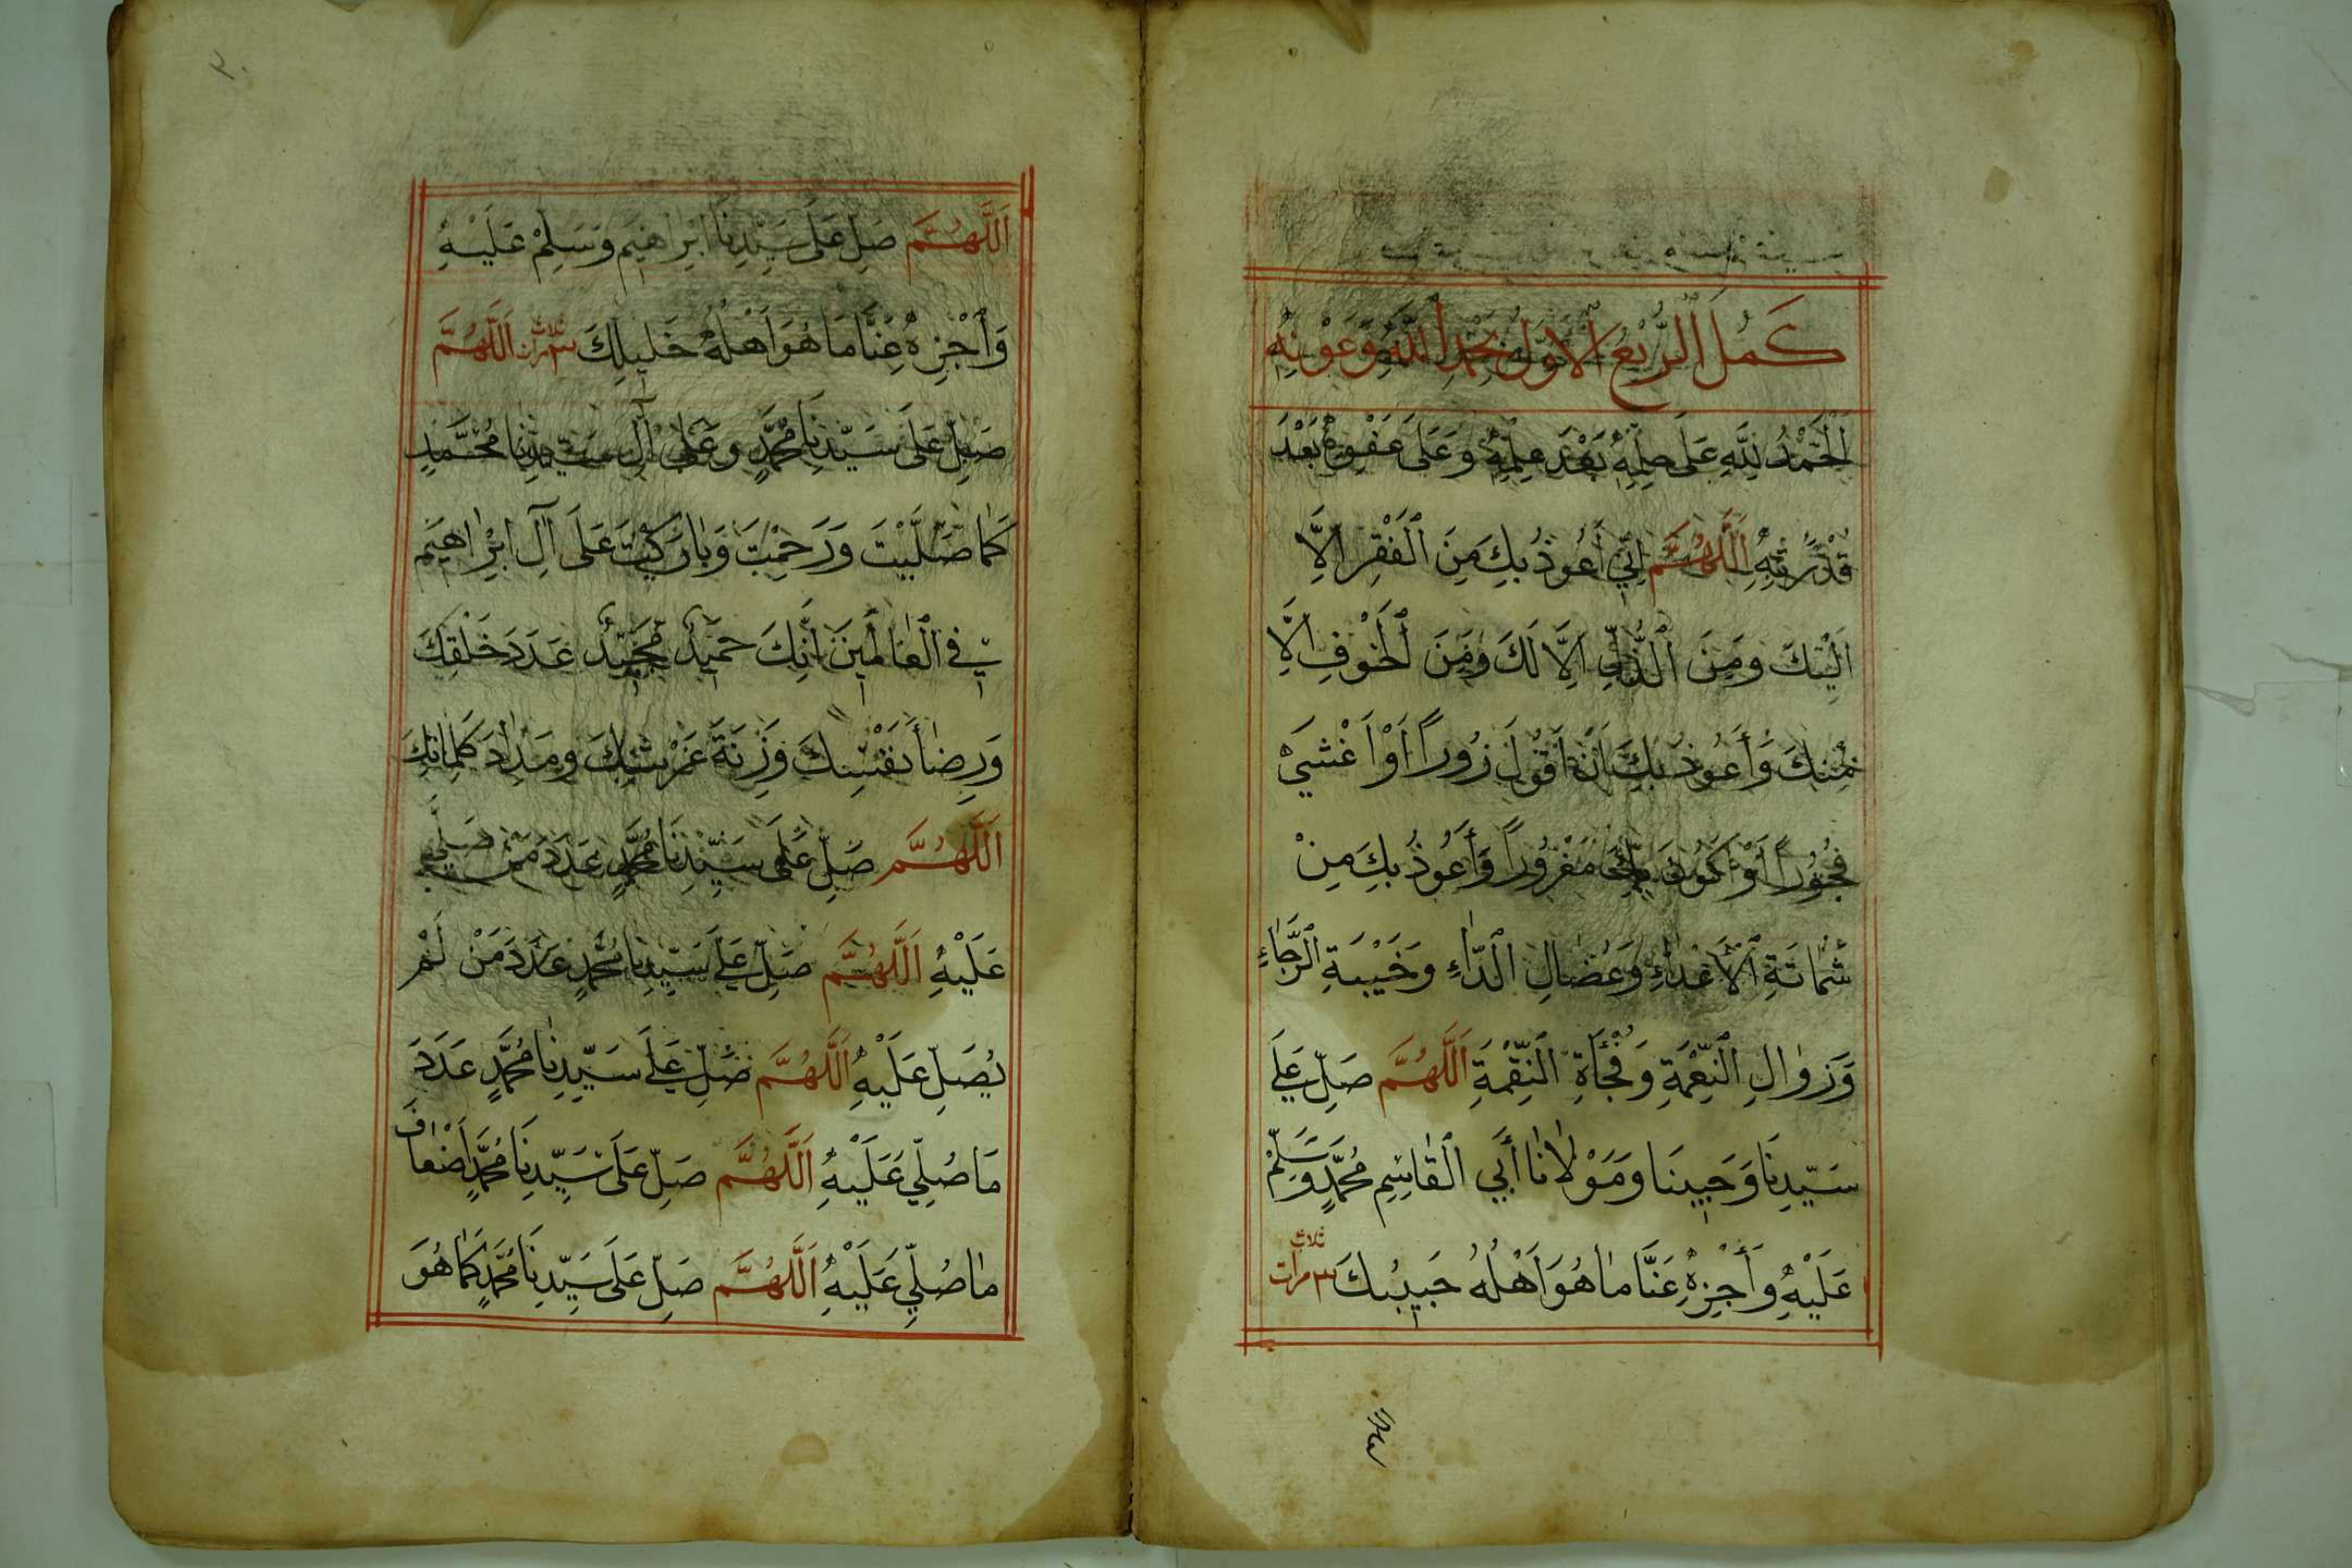 كَمُلَ ٱلرُّبْعُ ٱلْاَوَّلُ بِحَمْدِ ٱللّٰهِ وَعَوْنِهِ
اَلْحَمْدُ لِلّٰهِ عَلَى حِلْمِهِ بَعْدَ عِلْمِهِ وَعَلَى عَفْوِهِ بَعْدَ
قُدْرَتِهِ اَللّٰهُمَّ اِنِّي أَعُوذُ بِكَ مِنَ ٱلْفَقْرِ اِلَّا
اِلَيْكَ وَمِنَ ٱلذُّلِّ اِلَّا لَكَ وَمِنَ ٱلْخَوْفِ اِلَّا
مِنْكَ وَأَعُوذُ بِكَ اَنْ اَقُولَ زُورًا اَوْ اَغْشَيَ
فُجُورًا اَوْ اَكُونَ بِكَ مَغْرُورًا وَأَعُوذُ بِكَ مِنْ
شَمَاتَةِ ٱلْأَعْدَاءِ وَعُضَالِ ٱلدَّاءِ وَخَيْبَةِ ٱلرَّجَاءِ
وَزَوَالِ ٱلنِّعْمَةِ وَفُجْأَةِ ٱلنِّقْمَةِ اَللّٰهُمَّ صَلِّ عَلَى
سَيِّدِنَا وَحَبِيبِنَا وَمَوْلَانَا أَبِي ٱلْقَاسِمِ مُحَمَّدٍ وَسَلِّمْ
عَلَيْهِ وَأَجْزِهِ عَنَّا مَا هُوَ اَهْلُهُ حَبِيبُكَ ٣ مرات ثلاث
٢٠
اَللّٰهُمَّ صَلِّ عَلَى سَيِّدِنَا اِبْرَاهِيمَ وَسَلِّمْ عَلَيْهِ
وَٱجْزِهِ عَنَّا مَا هُوَ اَهْلُهُ خَلِيلِكَ ٣ مرات ثلاث اَللّٰهُمَّ
صَلِّ عَلَى سَيِّدِنَا مُحَمَّدٍ وَعَلَى آلِ سَيِّدِنَا مُحَمَّدٍ
كَمَا صَلَّيْتَ وَرَحِمْتَ وَبَارَكْتَ عَلَى آلِ اِبْرَاهِيمَ
فِي ٱلْعَالَمِينَ اِنَّكَ حَمِيدٌ مَجِيدٌ عَدَدَ خَلْقِكَ
وَرِضَا نَفْسِكَ وَزِنَةَ عَرْشِكَ وَمِدَادَ كَلِمَاتِكَ
اَللّٰهُمَّ صَلِّ عَلَى سَيِّدِنَا مُحَمَّدٍ عَدَدَ مَنْ صَلَّى
عَلَيْهِ اَللّٰهُمَّ صَلِّ عَلَى سَيِّدِنَا مُحَمَّدٍ عَدَدَ مَنْ لَمْ
يُصَلِّ عَلَيْهِ اَللّٰهُمَّ صَلِّ عَلَى سَيِّدِنَا مُحَمَّدٍ عَدَدَ
مَا صُلِّيَ عَلَيْهِ اَللّٰهُمَّ صَلِّ عَلَى سَيِّدِنَا مُحَمَّدٍ اَضْعَافَ
مَا صُلِّيَ عَلَيْهِ اَللّٰهُمَّ صَلِّ عَلَى سَيِّدِنَا مُحَمَّدٍ كَمَا هُوَ